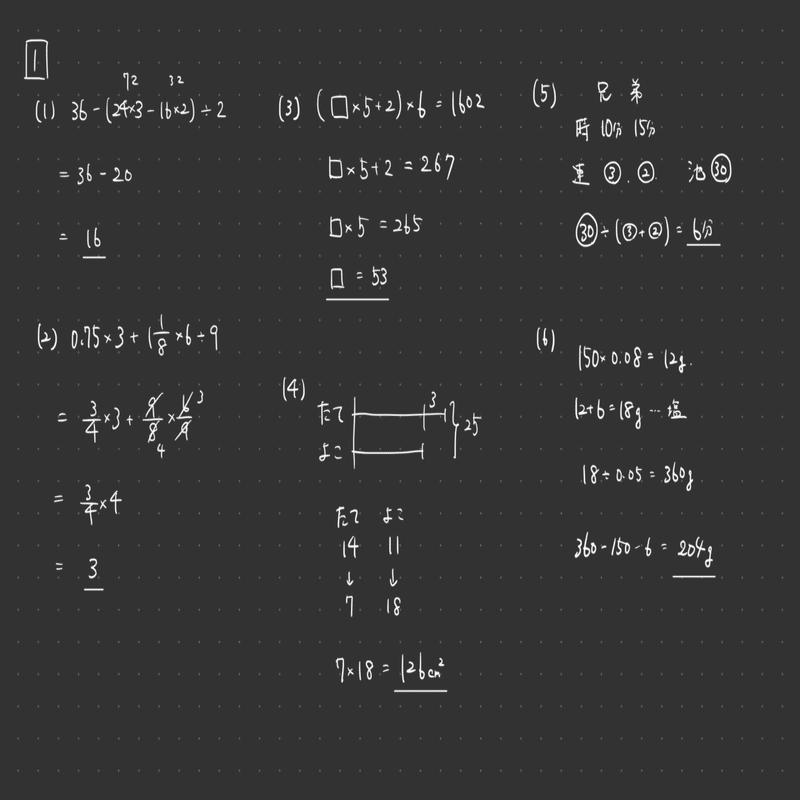 1
72 32
(1) 36-(24×3-16×2)÷2
= 36-20
= 16
(2) 0.75×3+1 1/8×6÷9
= 3/4×3+9/8×6/9
3
4
= 3/4×4
= 3
(3) (□×5+2)×6=1602
□×5+2=267
□×5=265
□=53
(4)
たて 3
よこ 25
たて よこ
14 11
↓ ↓
7 18
7×18=126cm²
(5) 兄 弟
時 10分 15分
速 ③. ② 池㉚
㉚÷(③+②)=6分
(6)
150×0.08=12g.
12+6=18g…塩
18÷0.05=360g
360-150-6=204g